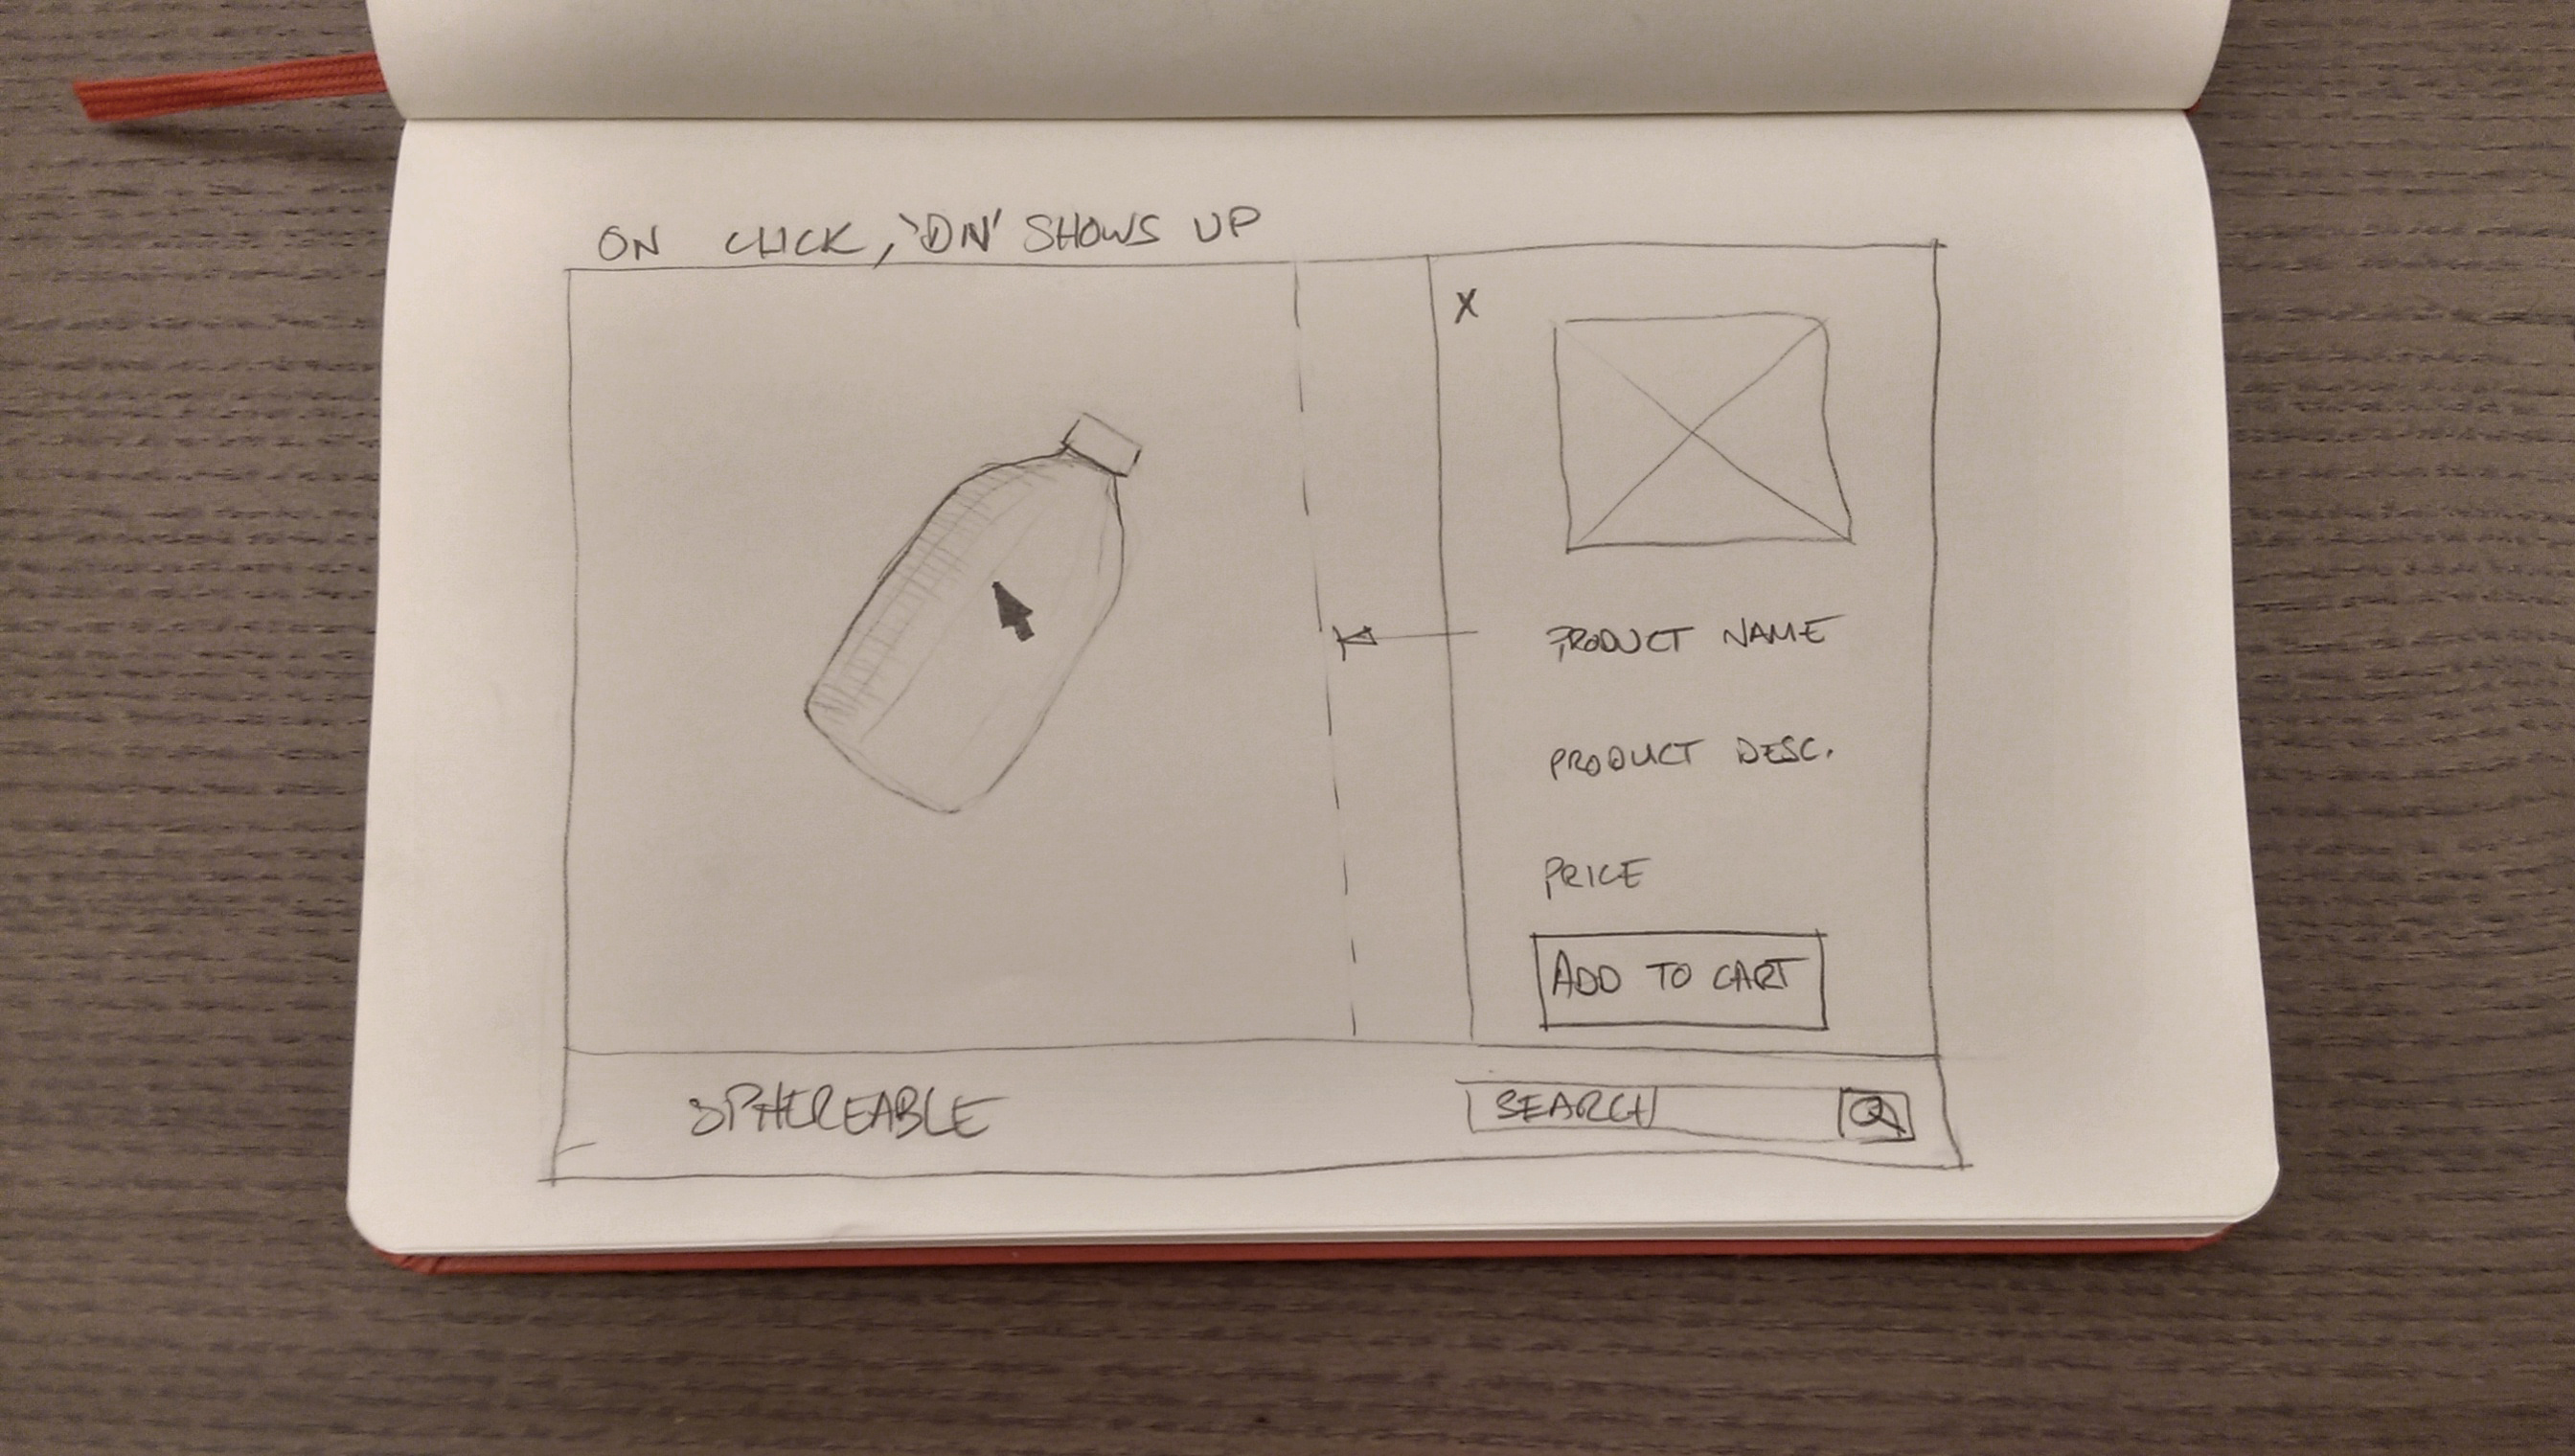 ON CLICK, 'DIV' SHOWS UP
X
PRODUCT NAME
PRODUCT DESC.
PRICE
ADD TO CART
SPHEREABLE
SEARCH